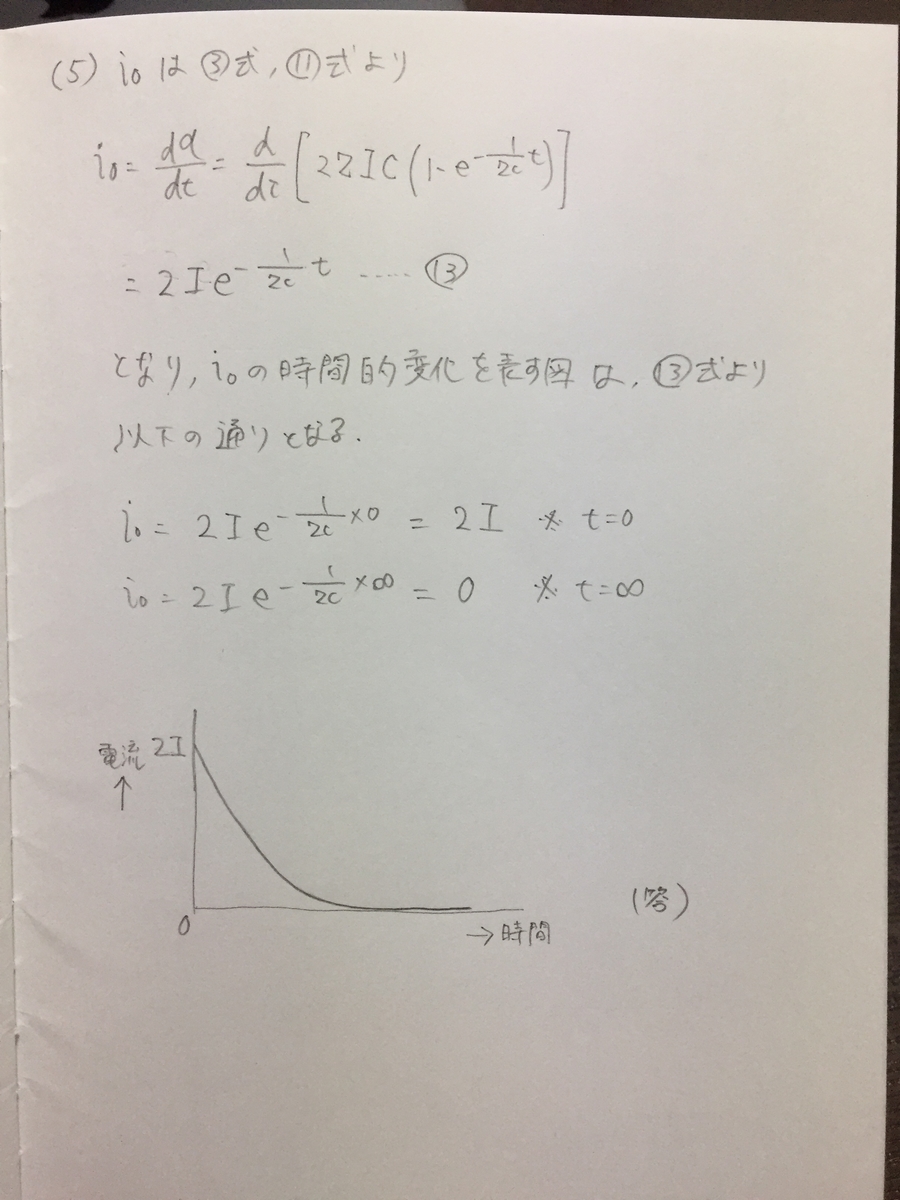 (5) i₀ は ③式, ⑪式より
i₀ = dq/dt = d/dt [2ZIC(1-e^{-\frac{1}{ZC}t})]
= 2Ie^{-\frac{1}{ZC}t} ..... ⑬
となり, i₀の時間的変化を表す図は, ⑬式より
以下の通りとなる.
i₀ = 2Ie^{-\frac{1}{ZC}×0} = 2I ※ t=0
i₀ = 2Ie^{-\frac{1}{ZC}×∞} = 0 ※ t=∞
電流 2I
↑
0
→時間
(答)